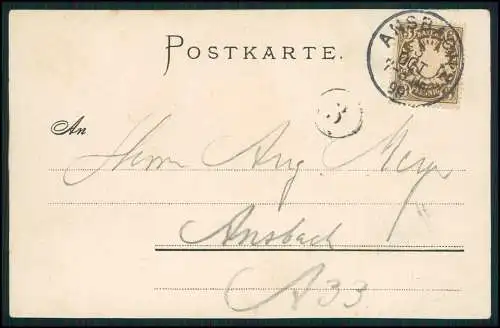 POSTKARTE.
ANSBACH
OKT
99
3
An
Herrn Aug. Meyer
Ansbach
A 33